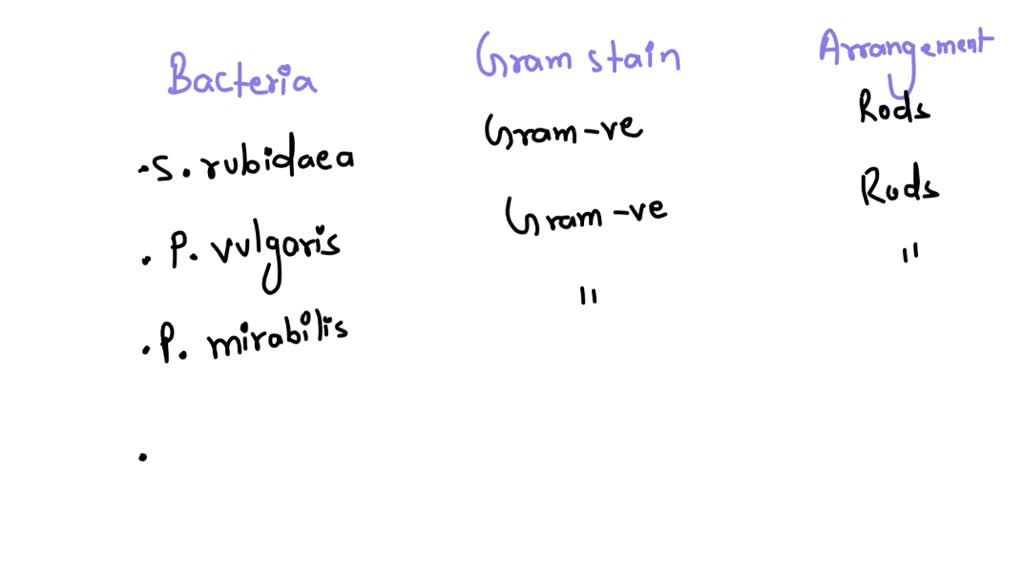 Bacteria Gram stain Arrangement
• S. rubidaea Gram -ve Rods
• P. vulgaris Gram -ve Rods
• P. mirabilis " "
•